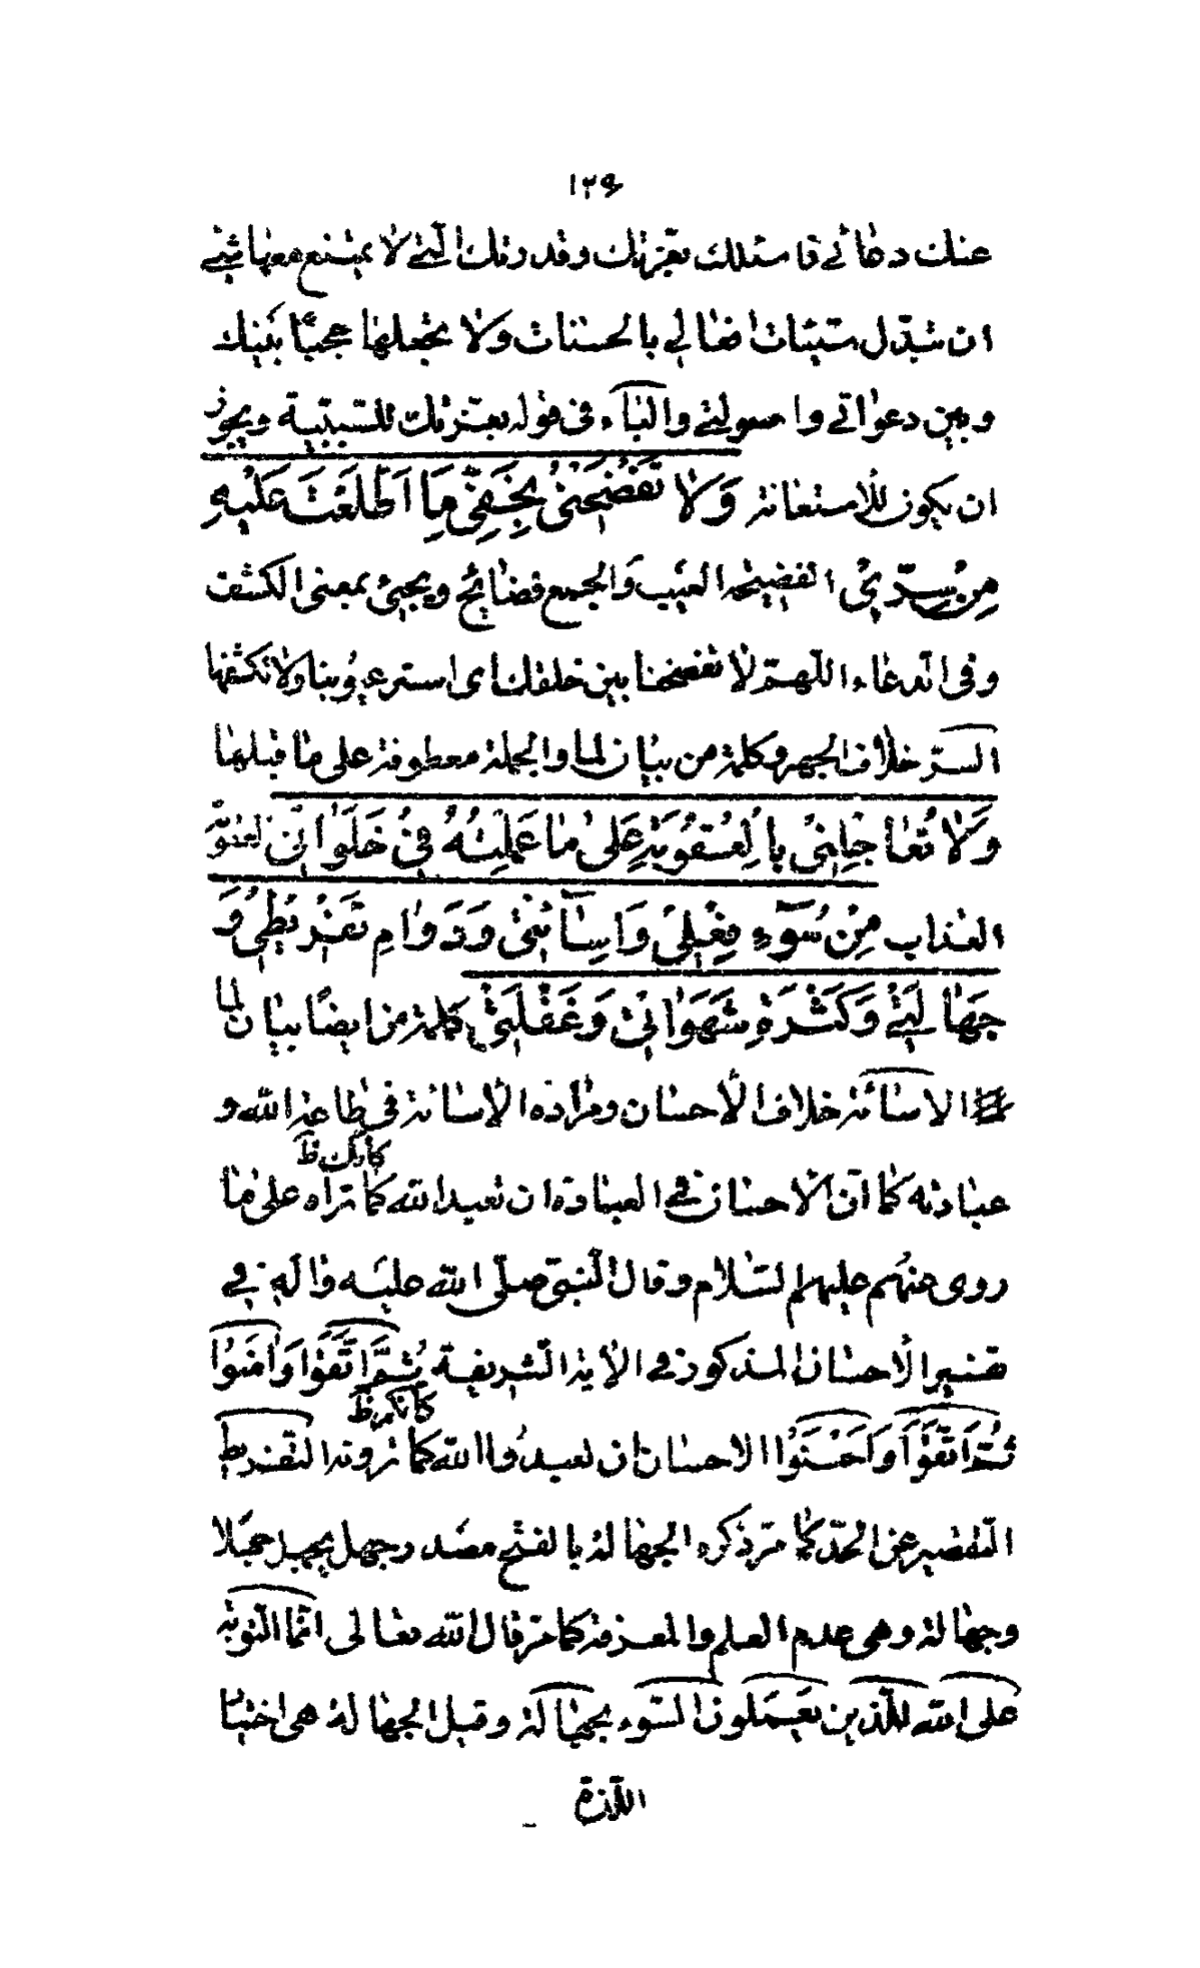 ١٢٩
عنك دعائي فاسئلك بعزتك وقدرتك الّتي لا يمتنع معها شيئ
ان تبدّل سيّئات افعالي بالحسنات ولا تجعلها حجبًا بينك
وبين دعواتي واصولتي والباء في قوله بعزتك للسببية ويجوز
ان يكون للاستعانة وَلا تَفْضَحْنِي بِخَفِيِّ مَا اطَّلَعْتَ عَلَيْهِ
مِنْ سِرِّي الفضيحة العَيب وَالجمع فضايح ويجيئ بمعنى الكشف
وفي الدعاء اللّهمّ لا تفضحنا بين خلقك اى استر عيُوبنا ولا تكشفها
السّتر خلاف الجهر وكلمة من بيان لما والجملة معطوفة على ما قبلها
وَلا تُعَاجِلْنِي بِالْعُقُوبَةِ عَلى مَا عَمِلْتُهُ فِي خَلَوَاتِي العقوبة
العذاب مِنْ سُوٓءِ فِعْلِي وَاِسَاۤئَتِي وَدَوَامِ تَفْرِيطِي وَ
جَهَالَتِي وَكَثْرَةِ شَهَوَاتِي وَغَفْلَتِي كلمة من ايضًا بيان لما
الاسائة خلاف الأحسان ومراده الأسائة في طاعة الله و
عبادته كما انّ الأحسان في العبادة ان تعبد الله كما تراه على ما
كأنك ظ
روى عنهم عليهم السّلام وقال النّبيّ صلّى الله عليَه واله في
تفسير الأحسان المذكور في الاية الشّريفة ثُمَّ اتَّقَوْا وَامَنُوا
ثُمَّ اتَّقَوْا وَاَحْسَنُوا الاحسان ان تعبدُوا الله كما ترونه التفريط
كأنكم ظ
التّقصير عن الحدّ كما مرّ ذكره الجهالة بالفتح مصدر جهل يجهل جهلا
وجهالة وهى عدم العلم والمعرفة كما مرّ قال الله تعالى انّما التّوبة
على الله للّذين يَعمَلونَ السّوء بجهالة وقيل الجهالة هى اختيار
اللّذة